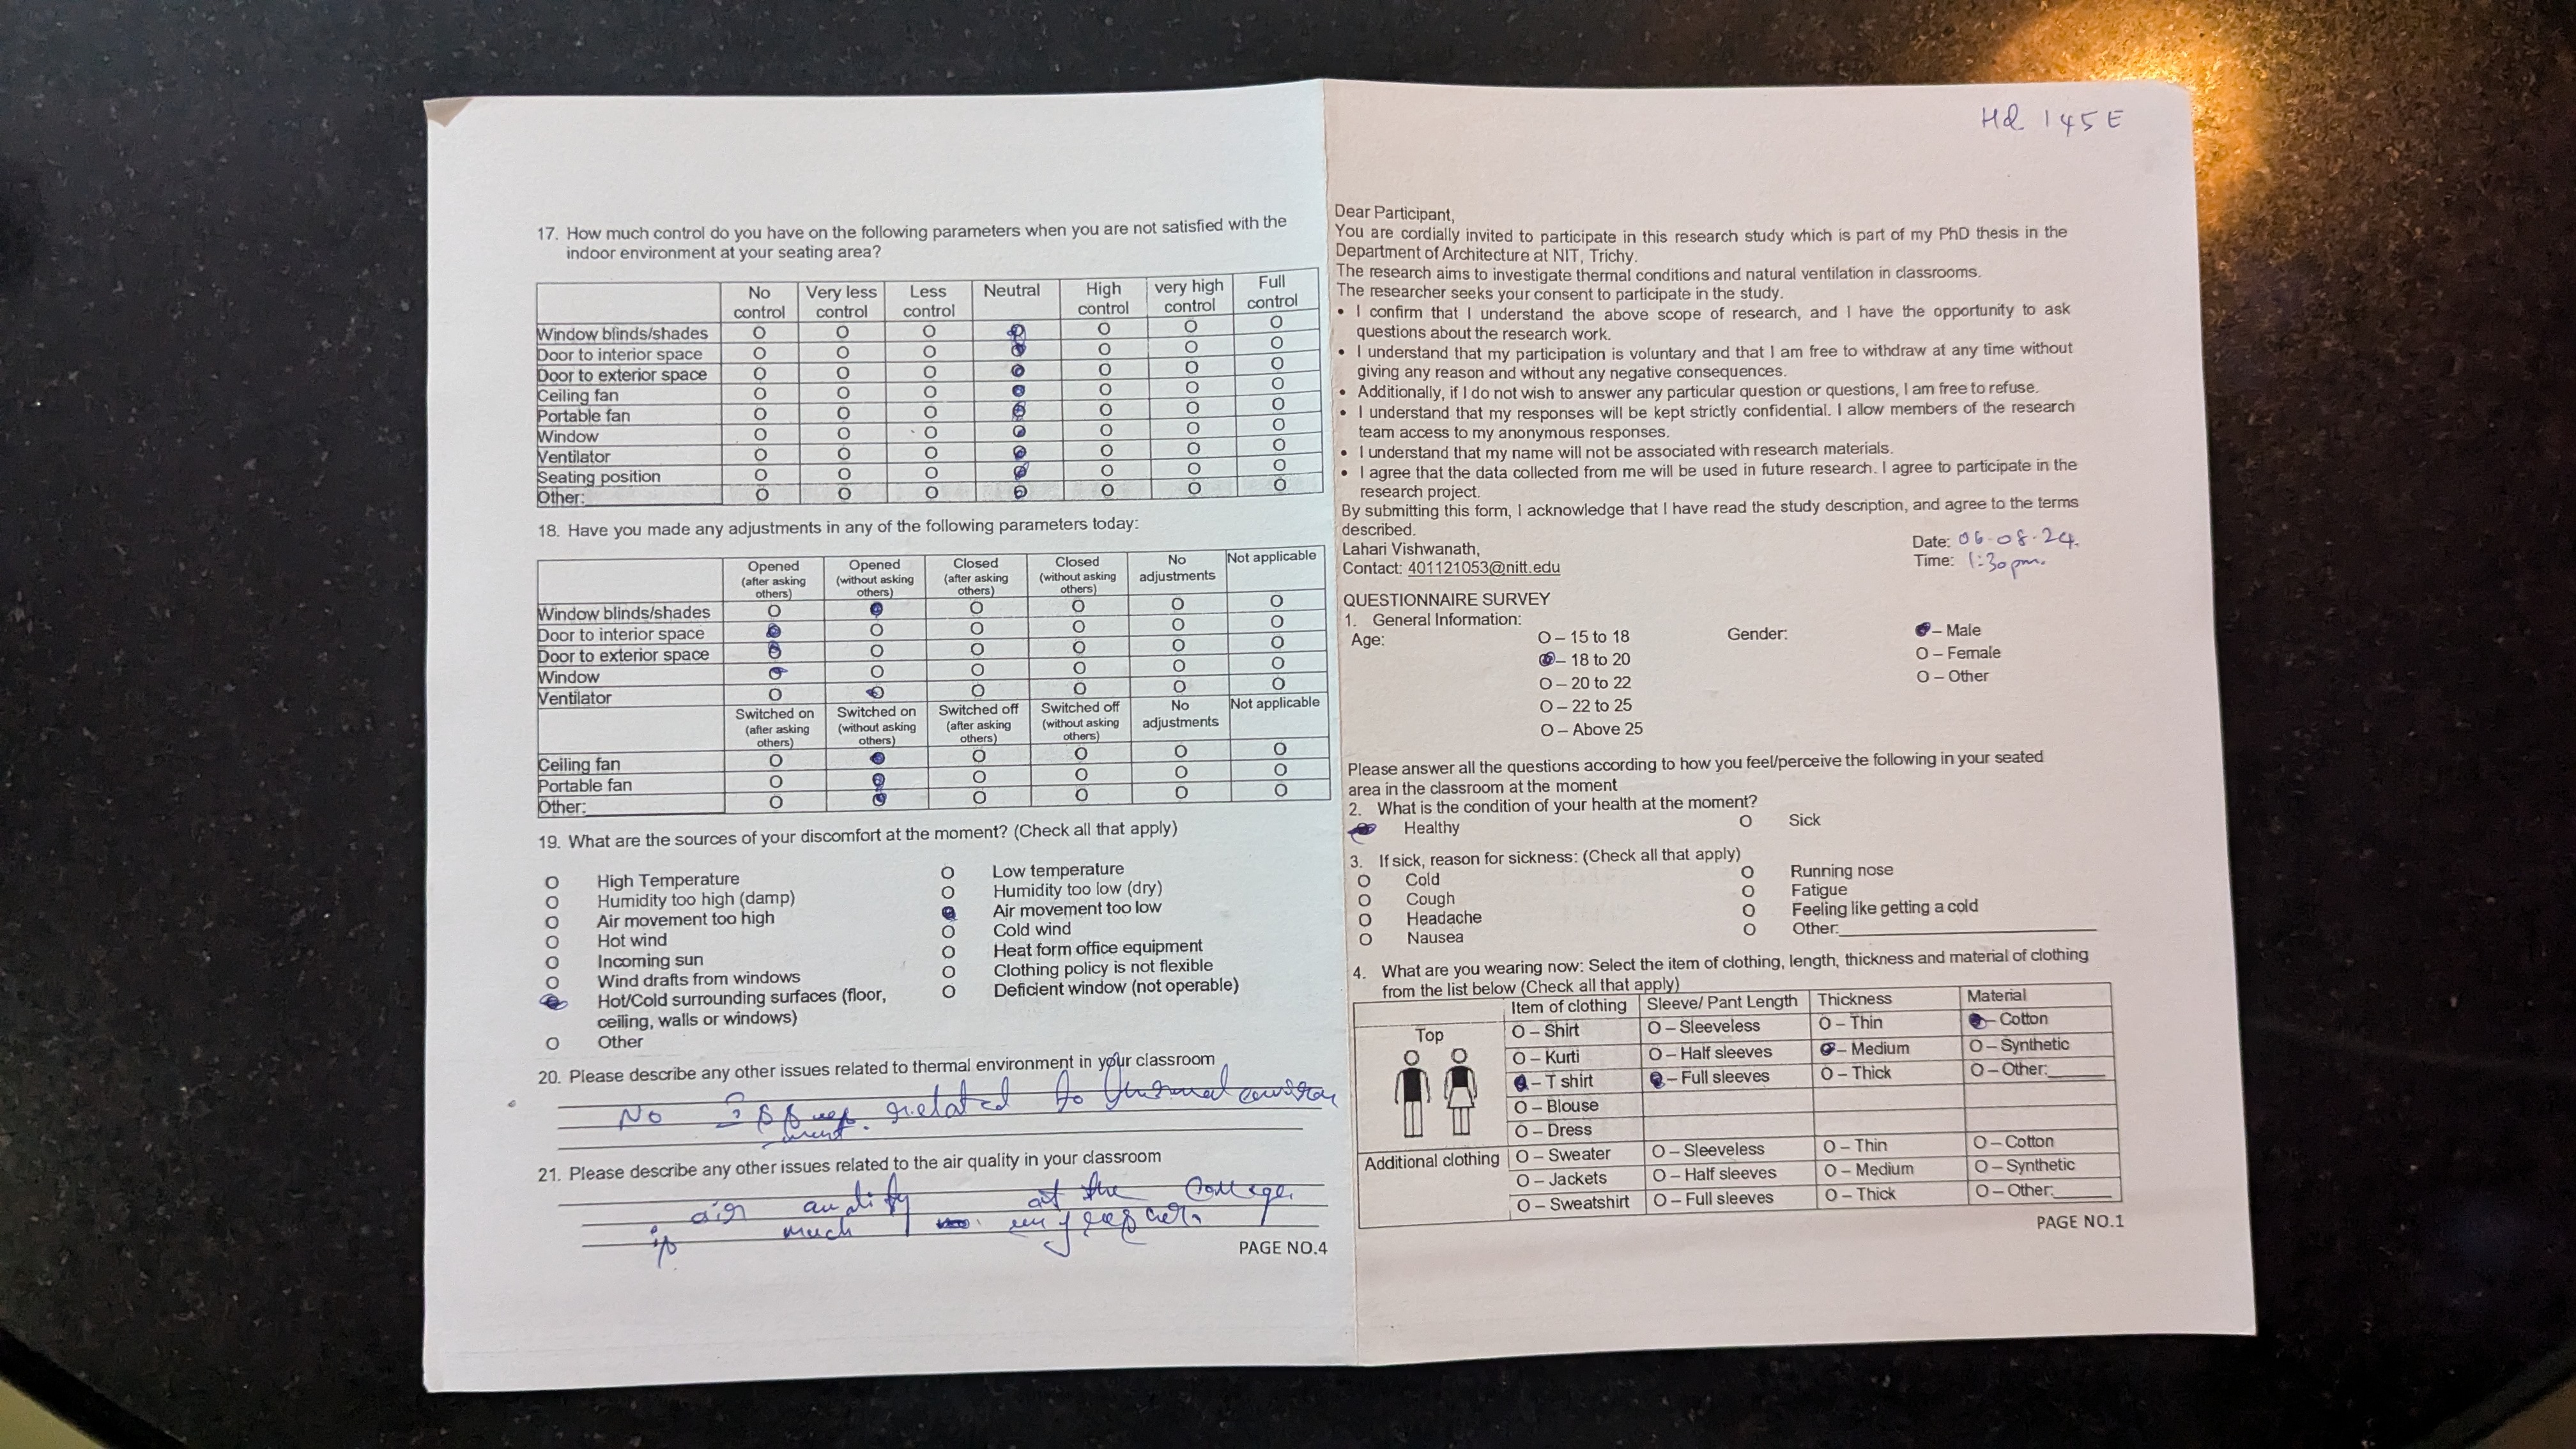 17. How much control do you have on the following parameters when you are not satisfied with the
indoor environment at your seating area?
No control Very less control Less control Neutral High control very high control Full control
Window blinds/shades O O O O O O O
Door to interior space O O O O O O O
Door to exterior space O O O O O O O
Ceiling fan O O O O O O O
Portable fan O O O O O O O
Window O O O O O O O
Ventilator O O O O O O O
Seating position O O O O O O O
Other: O O O O O O O
18. Have you made any adjustments in any of the following parameters today:
Opened (after asking others) Opened (without asking others) Closed (after asking others) Closed (without asking others) No adjustments Not applicable
Window blinds/shades O O O O O O
Door to interior space O O O O O O
Door to exterior space O O O O O O
Window O O O O O O
Ventilator O O O O O O
Switched on (after asking others) Switched on (without asking others) Switched off (after asking others) Switched off (without asking others) No adjustments Not applicable
Ceiling fan O O O O O O
Portable fan O O O O O O
Other: O O O O O O
19. What are the sources of your discomfort at the moment? (Check all that apply)
O High Temperature O Low temperature
O Humidity too high (damp) O Humidity too low (dry)
O Air movement too high O Air movement too low
O Hot wind O Cold wind
O Incoming sun O Heat form office equipment
O Wind drafts from windows O Clothing policy is not flexible
O Hot/Cold surrounding surfaces (floor, O Deficient window (not operable)
ceiling, walls or windows)
O Other
20. Please describe any other issues related to thermal environment in your classroom
No related to thermal
21. Please describe any other issues related to the air quality in your classroom
air at the college
is much
PAGE NO.4
Hd 145E
Dear Participant,
You are cordially invited to participate in this research study which is part of my PhD thesis in the
Department of Architecture at NIT, Trichy.
The research aims to investigate thermal conditions and natural ventilation in classrooms.
The researcher seeks your consent to participate in the study.
• I confirm that I understand the above scope of research, and I have the opportunity to ask
questions about the research work.
• I understand that my participation is voluntary and that I am free to withdraw at any time without
giving any reason and without any negative consequences.
• Additionally, if I do not wish to answer any particular question or questions, I am free to refuse.
• I understand that my responses will be kept strictly confidential. I allow members of the research
team access to my anonymous responses.
• I understand that my name will not be associated with research materials.
• I agree that the data collected from me will be used in future research. I agree to participate in the
research project.
By submitting this form, I acknowledge that I have read the study description, and agree to the terms
described.
Lahari Vishwanath, Date: 06-08-24.
Contact: 401121053@nitt.edu Time: 1:30pm.
QUESTIONNAIRE SURVEY
1. General Information:
Age: O – 15 to 18 Gender: O – Male
O – 18 to 20 O – Female
O – 20 to 22 O – Other
O – 22 to 25
O – Above 25
Please answer all the questions according to how you feel/perceive the following in your seated
area in the classroom at the moment
2. What is the condition of your health at the moment?
O Healthy O Sick
3. If sick, reason for sickness: (Check all that apply)
O Cold O Running nose
O Cough O Fatigue
O Headache O Feeling like getting a cold
O Nausea O Other:
4. What are you wearing now: Select the item of clothing, length, thickness and material of clothing
from the list below (Check all that apply)
Item of clothing Sleeve/ Pant Length Thickness Material
Top O – Shirt O – Sleeveless O – Thin O – Cotton
O – Kurti O – Half sleeves O – Medium O – Synthetic
O – T shirt O – Full sleeves O – Thick O – Other:
O – Blouse
O – Dress
Additional clothing O – Sweater O – Sleeveless O – Thin O – Cotton
O – Jackets O – Half sleeves O – Medium O – Synthetic
O – Sweatshirt O – Full sleeves O – Thick O – Other:
PAGE NO.1